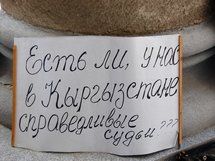 Есть ли, у нас
в Кыргызстане
справедливые
судьи???